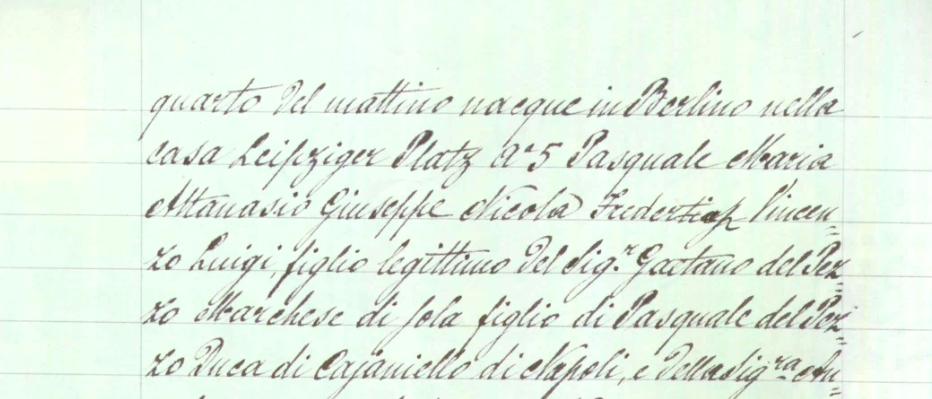 quarto del mattino nacque in Berlino nella
casa Leipziger Platz No 5 Pasquale Maria
Attanasio Giuseppe Nicola Vincen=
zo Luigi, figlio legittimo del Sigr. Gaetano del Pez=
zo Marchese di figlio di Pasquale del Pez=
zo Duca di Cajaniello di Napoli, e della Sigra. An=